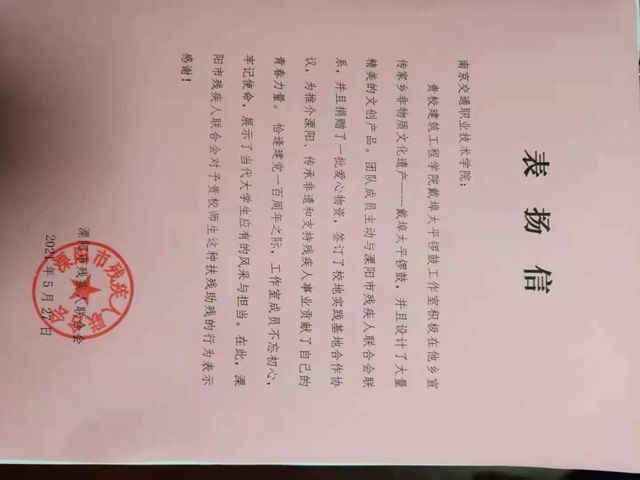 表扬信
南京交通职业技术学院：
贵校建筑工程学院戴埠太平锣鼓工作室积极在他乡宣
传家乡非物质文化遗产——戴埠太平锣鼓，并且设计了大量
精美的文创产品。团队成员主动与溧阳市残疾人联合会联
系，并且捐赠了一批爱心物资，签订了校地实践基地合作协
议，为推介溧阳、传承非遗和支持残疾人事业贡献了自己的
青春力量。恰逢建党一百周年之际，工作室成员不忘初心，
牢记使命，展示了当代大学生应有的风采与担当。在此，溧
阳市残疾人联合会对于贵校师生这种扶残助残的行为表示
感谢！
溧阳市残疾人联合会
2021年5月27日